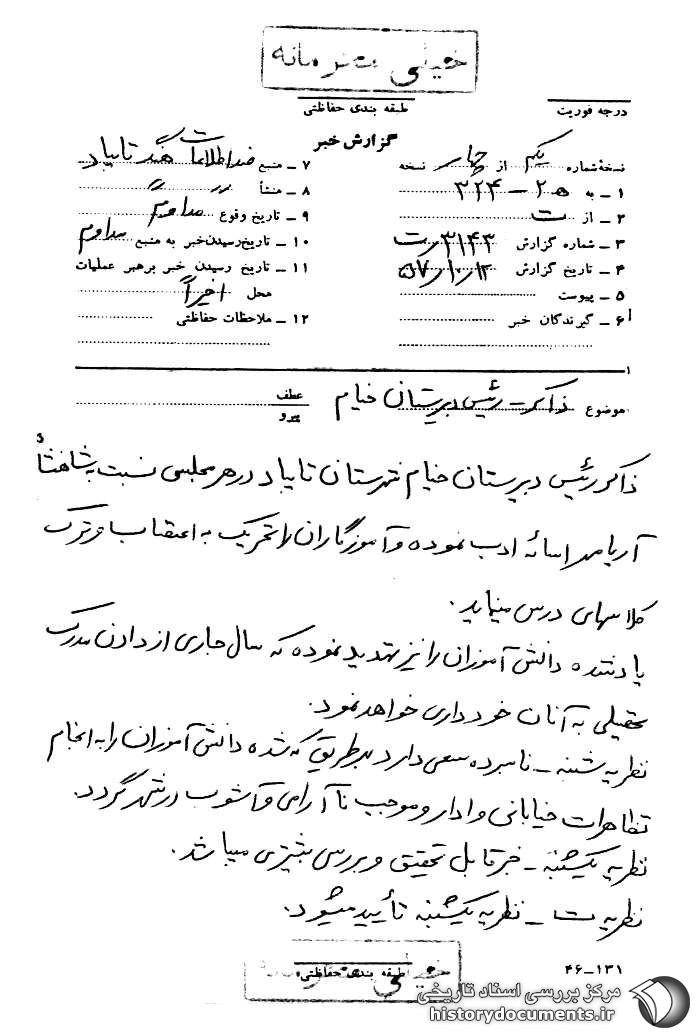 خیلی محرمانه
درجه فوریت
طبقه بندی حفاظتی
گزارش خبر
نسخهٔ شماره یکم از چهار نسخه
۱ - به ۲۵ - ۳۲۴
۲ - از ت
۳ - شماره گزارش ۳۱۴۳
۴ - تاریخ گزارش
۵ - پیوست
۶ - گیرندگان خبر
۷ - منبع ضد اطلاعات هنگ تایباد
۸ - منشأ
۹ - تاریخ وقوع مداوم
۱۰ - تاریخ رسیدن خبر به منبع مداوم
۱۱ - تاریخ رسیدن خبر برهبر عملیات
محل اخیراً
۱۲ - ملاحظات حفاظتی
موضوع ذاکر - رئیس دبیرستان خیام
عطف
پیرو
ذاکر رئیس دبیرستان خیام شهرستان تایباد در هر مجلسی نسبت به شاهنشاه
آریامهر اسائه ادب نموده و آموزگاران را تحریک به اعتصاب و ترک
کلاسهای درس مینماید.
یاد شده دانش آموزان را نیز تهدید نموده که سال جاری از دادن مدرک
تحصیلی به آنان خودداری خواهد نمود.
نظریه شنبه - نامبرده سعی دارد بهر طریق که شده دانش آموزان را به انجام
تظاهرات خیابانی وادار و موجب ناآرامی و آشوب در شهر گردد.
نظریه یکشنبه - خبر قابل تحقیق و بررسی بیشتری میباشد.
نظریه ت - نظریه یکشنبه تأیید میشود.
خیلی محرمانه
طبقه بندی حفاظتی
۱۳۱-۴۶
مرکز بررسی اسناد تاریخی
historydocuments.ir